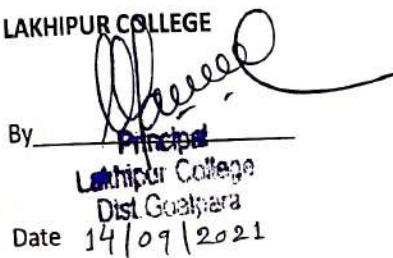 LAKHIPUR COLLEGE
By
Principal
Lakhipur College
Dist Goalpara
Date 14/09/2021